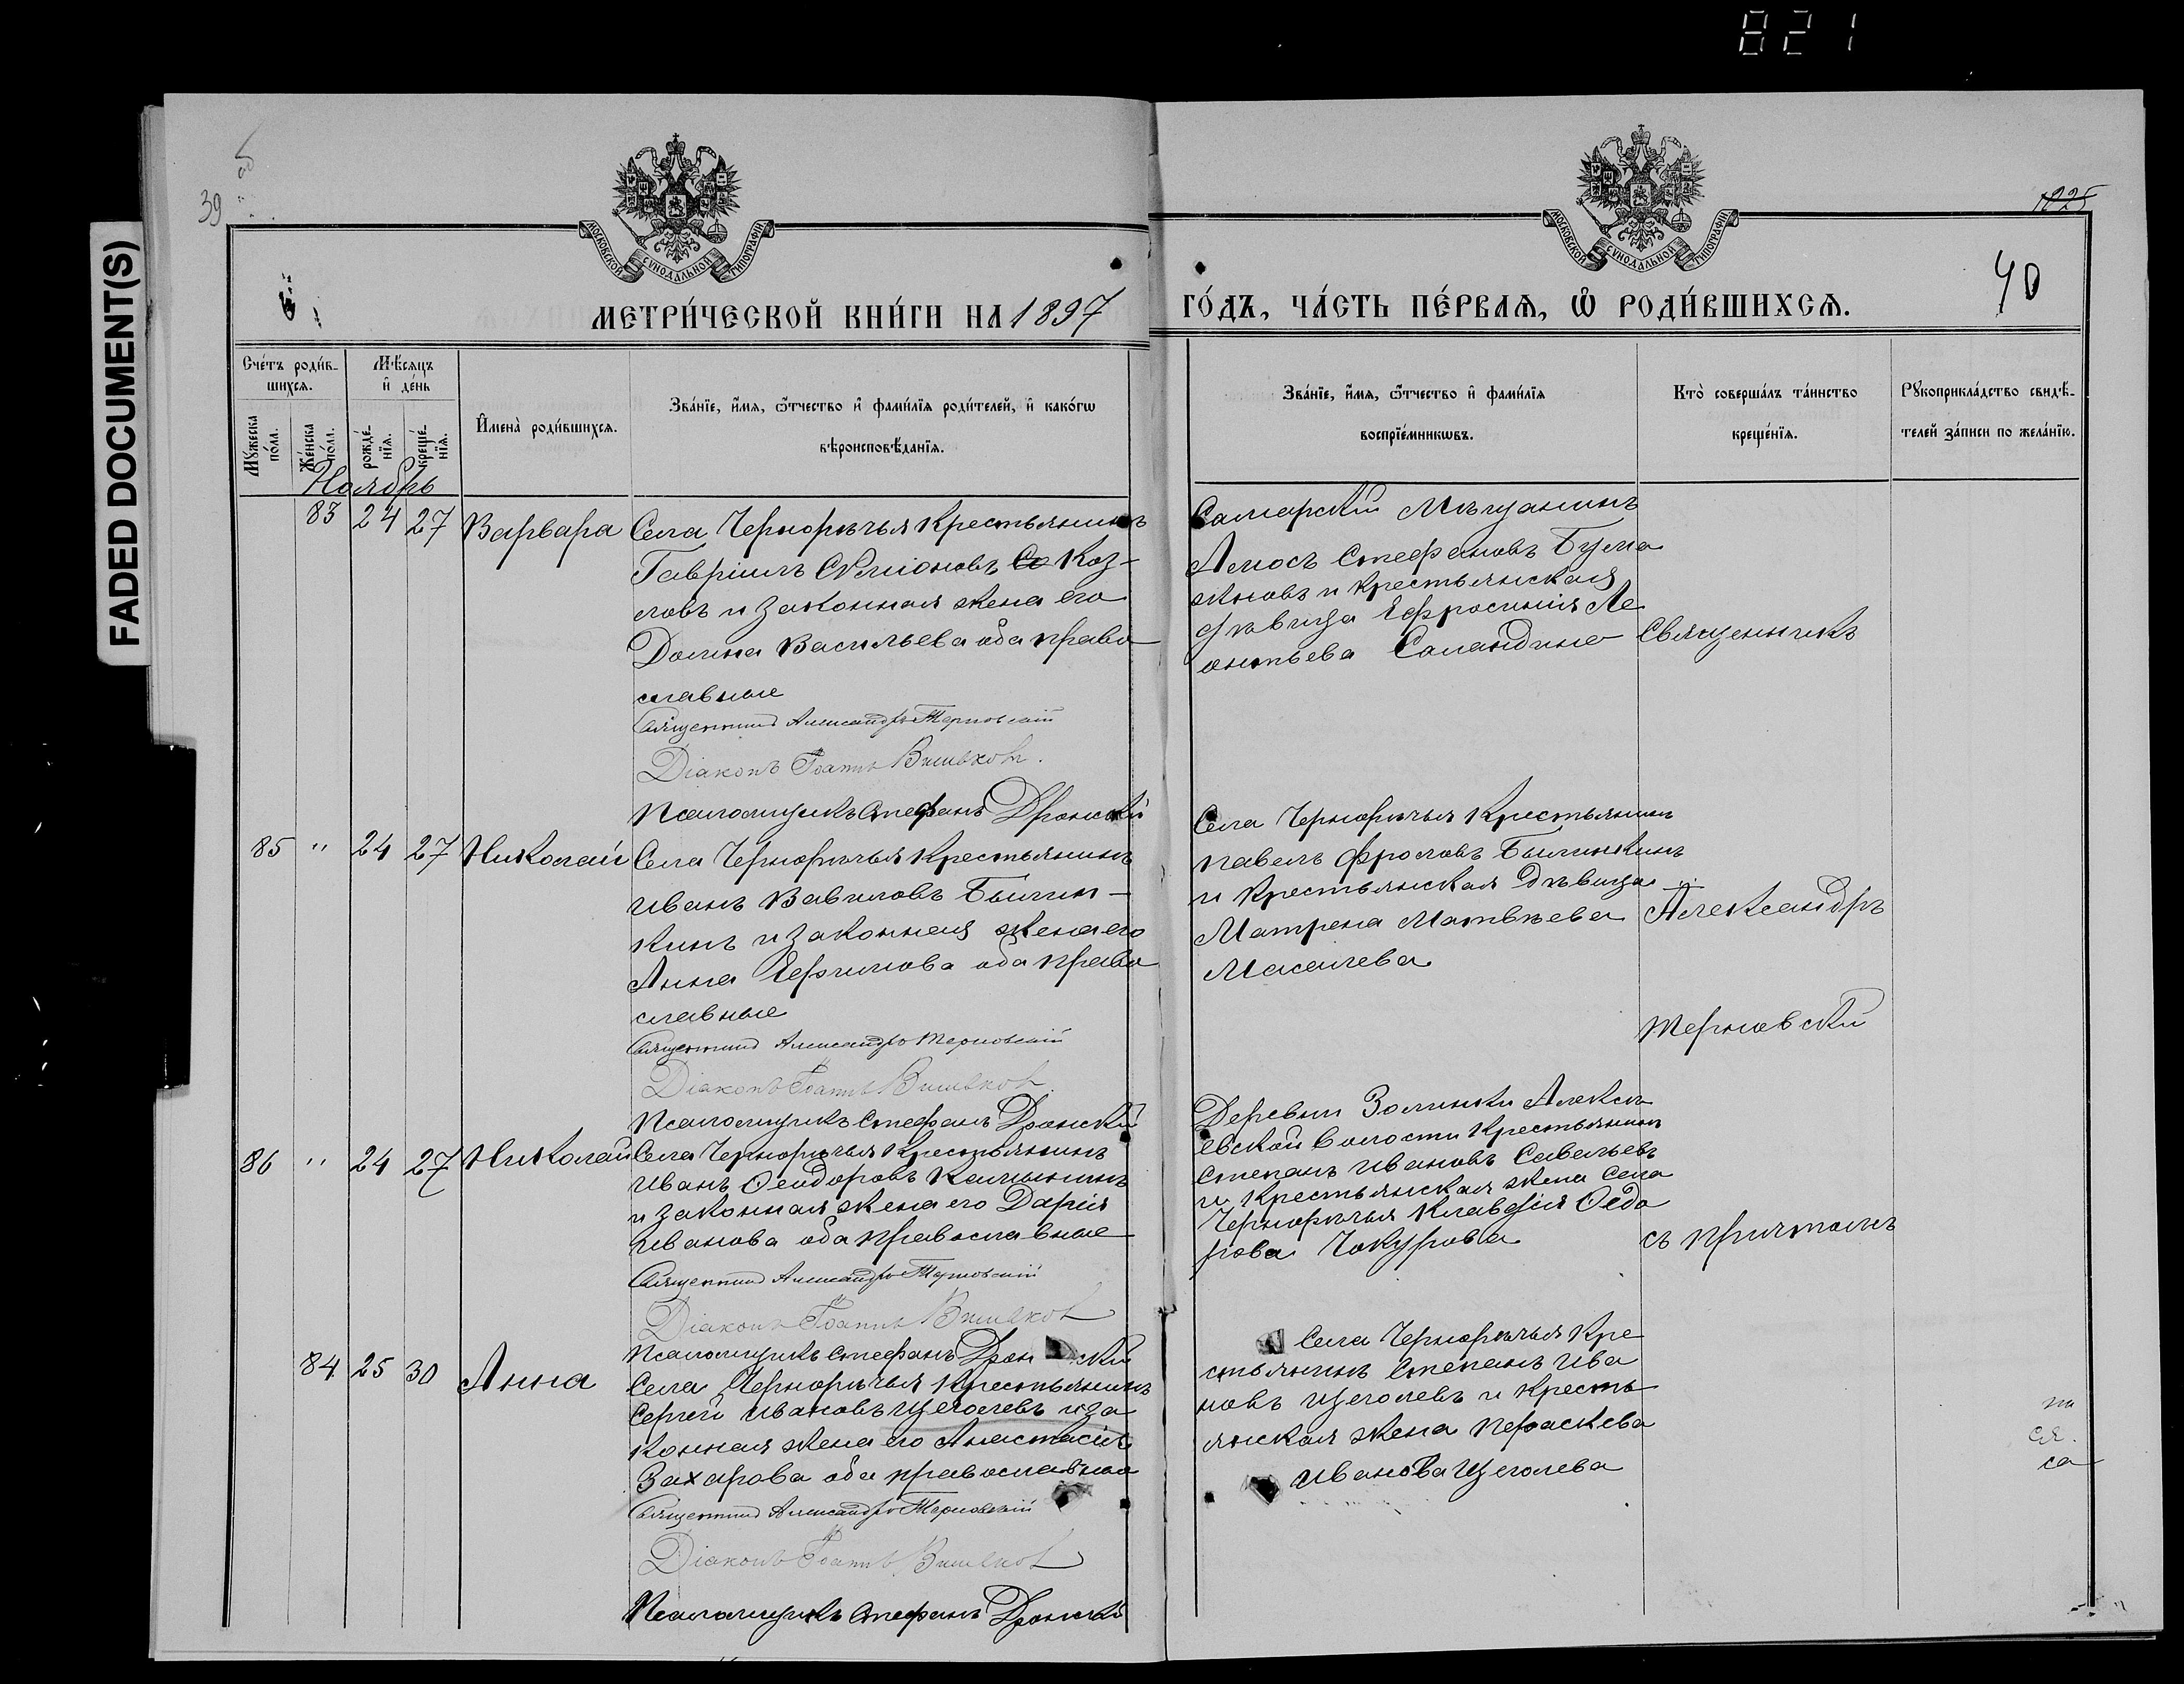 821
FADED DOCUMENT(S)
39
1825
40
МОСКОВСКОЙ СѴНОДАЛЬНОЙ ТИПОГРАФІИ
МОСКОВСКОЙ СѴНОДАЛЬНОЙ ТИПОГРАФІИ
МЕТРИ́ЧЕСКОЙ КНИ́ГИ НА 1897 ГО́ДЪ, ЧА́СТЬ ПЕ́РВАѦ, Ѽ РОДИ́ВШИХСѦ.
Сче́тъ роди́в-
шихсѧ.
Мѣ́сѧцъ
и҆ де́нь
Мꙋ́жеска по́ла.
Же́нска по́ла.
рожде́-
нїѧ.
креще́-
нїѧ.
И҆мена̀ роди́вшихсѧ.
Зва́нїе, и҆́мѧ, ѻ҆́тчество и҆ фами́лїѧ роди́телей, и҆ како́гѡ
вѣроисповѣ́данїѧ.
Зва́нїе, и҆́мѧ, ѻ҆́тчество и҆ фами́лїѧ
воспрїе́мникѡвъ.
Кто̀ соверша́лъ та́инство
креще́нїѧ.
Рꙋкоприкла́дство свидѣ́-
телей за́писи по жела́нїю.
Ноябрь
83 24 27 Варвара
Села Чернорѣчья крестьянинъ
Гавріилъ Сѵміоновъ Коз-
ловъ и законная жена его
Домна Васильева оба право
славные
Священникъ Александръ Терновскій
Діаконъ Іоаннъ
Псаломщикъ Стефанъ Дронскій
Самарскій Мѣщанинъ
Амосъ Стефановъ Бузма
ковъ и крестьянская
дѣвица Ефросинія Ле
онтьева
Священникъ
85 " 24 27 Николай
Села Чернорѣчья крестьянинъ
Иванъ Вавиловъ Былин-
кинъ и законная жена его
Анна Ефимова оба право
славные
Священникъ Александръ Терновскій
Діаконъ Іоаннъ
Псаломщикъ Стефанъ Дронскій
Села Чернорѣчья Крестьянинъ
Павелъ Фроловъ Былинкинъ
и Крестьянская дѣвица
Матрена Матвѣева
Масалева
Александръ
Терновскій
86 " 24 27 Николай
Села Чернорѣчья Крестьянинъ
Иванъ Ѳеодоровъ
и законная жена его Дарія
Иванова оба православные
Священникъ Александръ Терновскій
Діаконъ Іоаннъ
Псаломщикъ Стефанъ Дронскій
Деревни Золинки Алексѣ
евской Волости Крестьянинъ
Степанъ Ивановъ Савельевъ
и Крестьянская жена Села
Чернорѣчья Клавдія Ѳедо
рова Чокурова
съ причтомъ
84 25 30 Анна
Села Чернорѣчья Крестьянинъ
Сергѣй Ивановъ Щеголевъ и за
конная жена его Анастасія
Захарова оба православные
Священникъ Александръ Терновскій
Діаконъ Іоаннъ
Псаломщикъ Стефанъ Дронскій
Села Чернорѣчья Кре
стьянинъ Степанъ Ива
новъ Щеголевъ и Кресть
янская жена Параскева
Иванова Щеголева